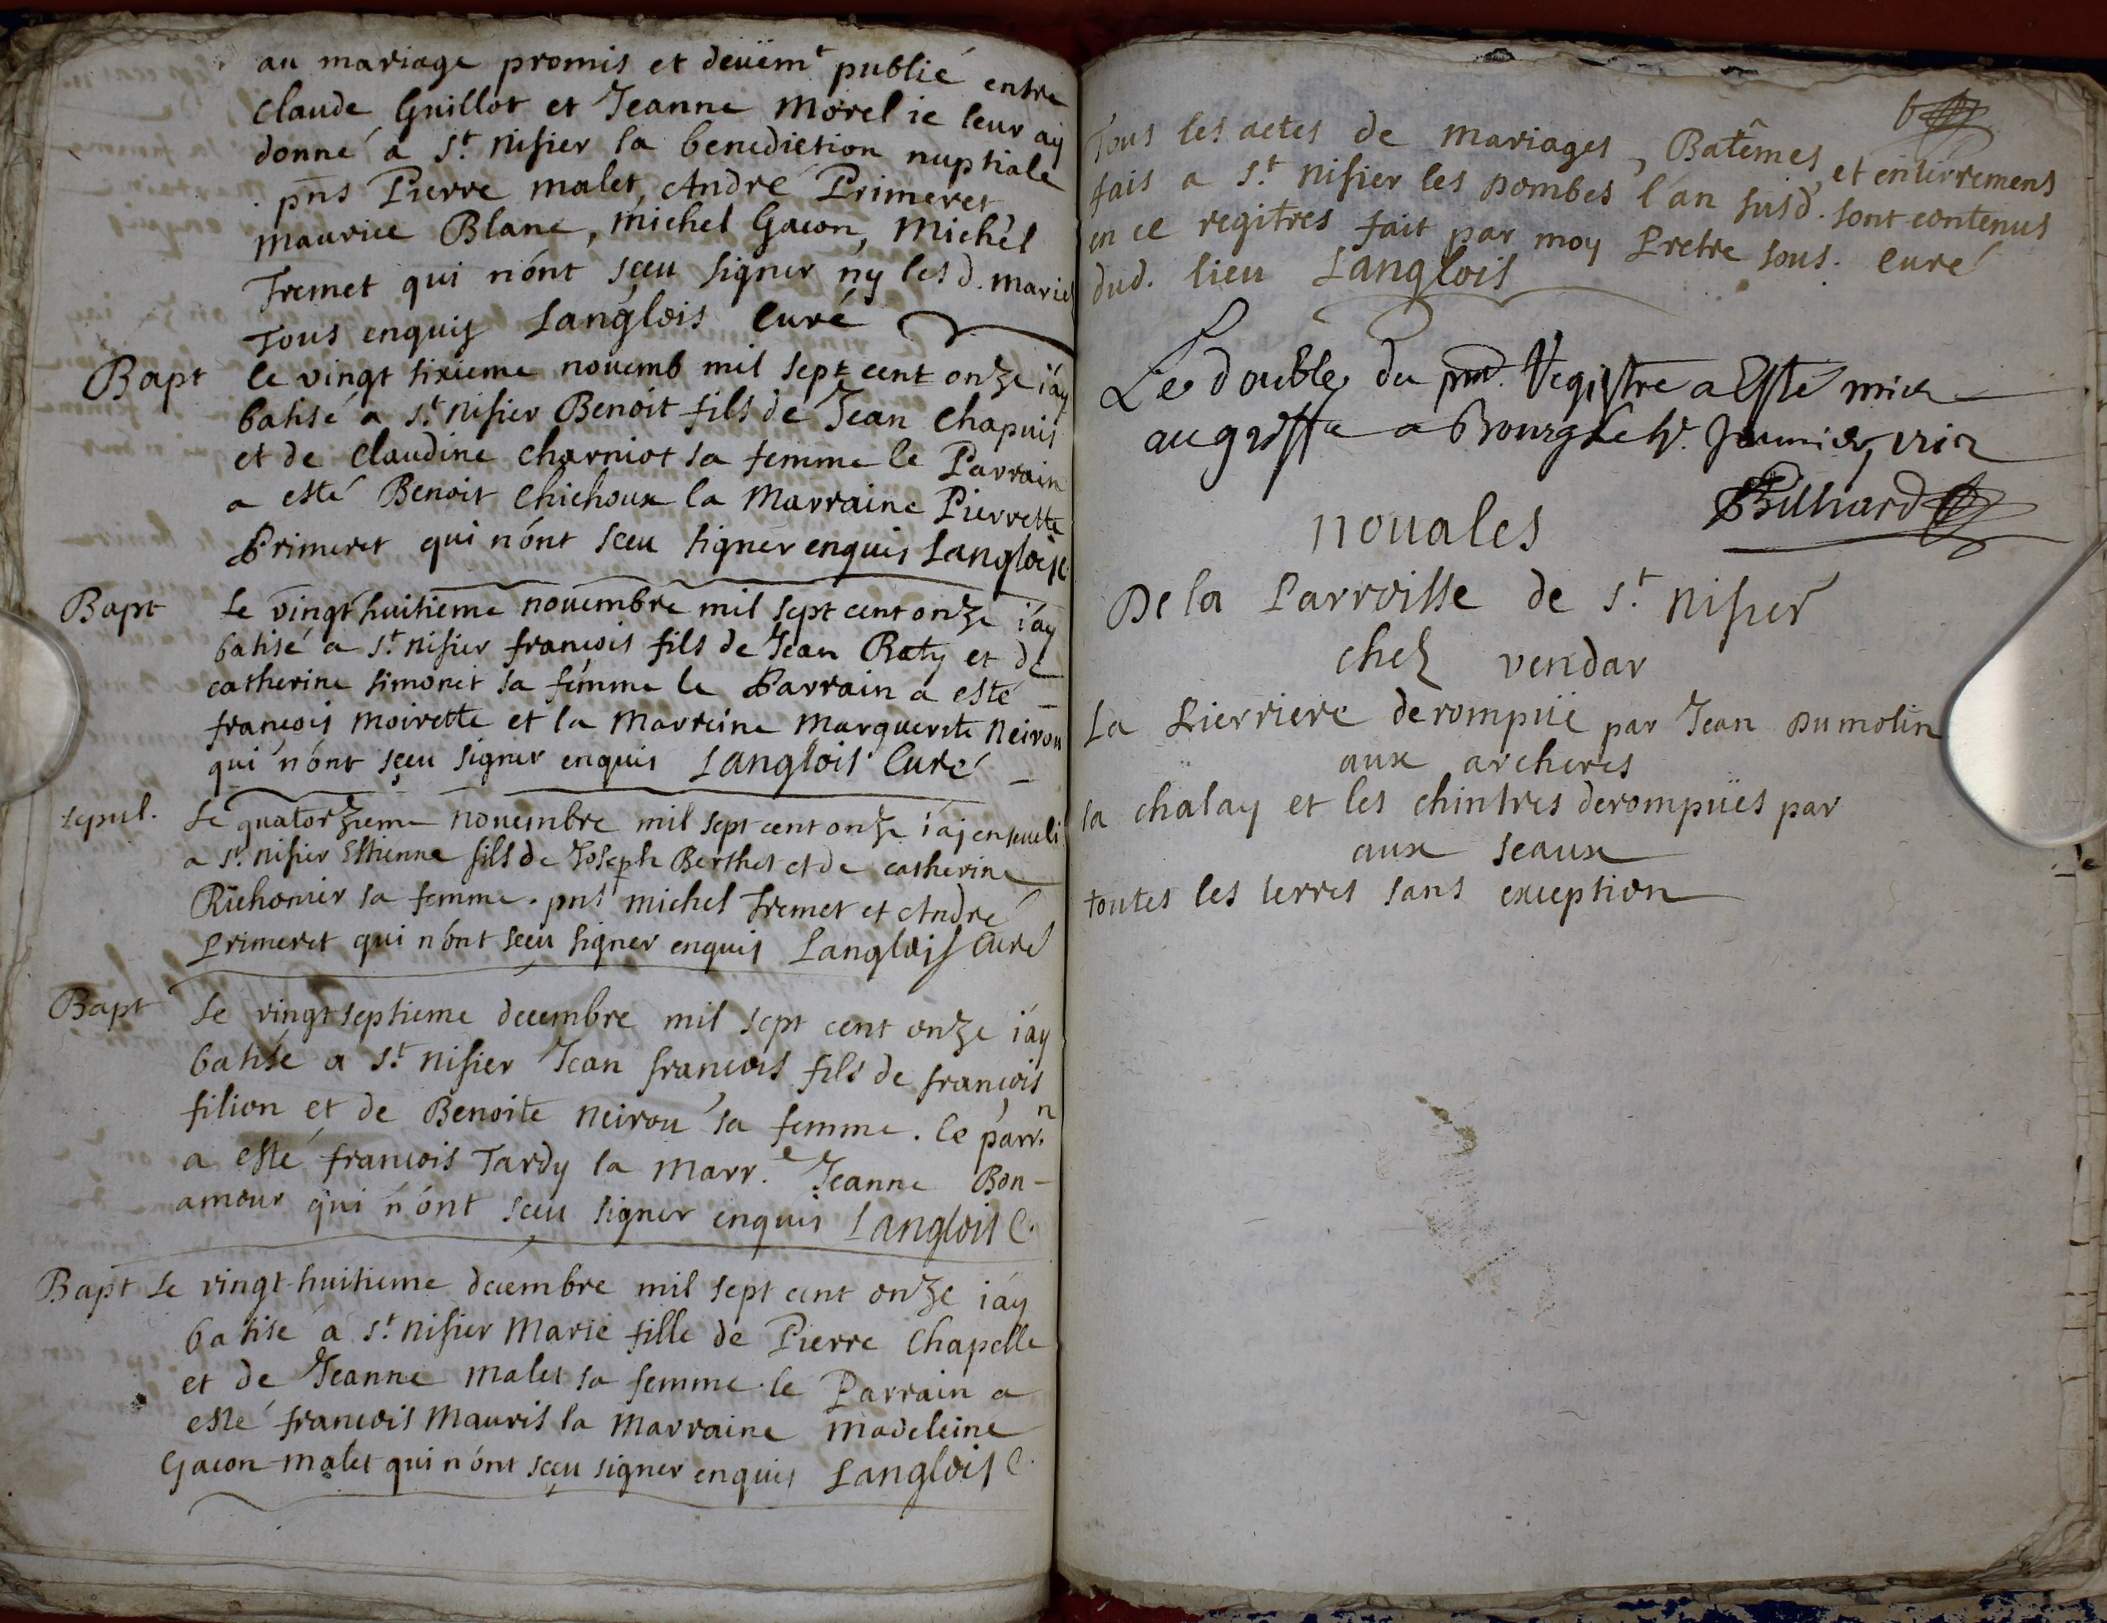 au mariage promis et deüëmt publié entre
Claude Guillot et Jeanne Morel ie leur ay
donné a St. Nisier la benediction nuptiale
pns Pierre malet, André Primeret
maurice Blanc, michel Gacon, Michel
Fremet qui n'ont sceu signer ny les d. mariés
Tous enquis Langlois Curé
Bapt le vingt sixieme novemb mil sept cent onze i'ay
batisé a St. Nisier Benoit fils de Jean Chapuis
et de Claudine Charniot sa femme le Parrain
a esté Benoit Chichoux la Marraine Pierrette
Primeret qui n'ont sceu signer enquis Langlois C.
Bapt Le vingt huitieme nouembre mil sept cent onze i'ay
batisé a St. nisier françois fils de Jean Raty et de
catherine simonet sa femme le Parrain a esté
françois moirette et la Marreine Marguerite Neirou
qui n'ont sçeu signer enquis Langlois Curé
sepul. Le quatorzieme nouembre mil sept cent onze i'aj enseueli
a St. nisier Estienne fils de Joseph Berthet et de catherine
Richonier sa femme. pns michel Fremet et André
Primeret qui n'ont sceu signer enquis Langlois Curé
Bapt Le vingt septieme decembre mil sept cent onze i'ay
batisé a St. nisier Jean françois fils de françois
filion et de Benoite Neirou sa femme. le parrn.
a esté françois Tardy la Marre. Jeanne Bon-
amour qui n'ont sceu signer enquis Langlois C.
Bapt Le vingt-huitieme decembre mil sept cent onze i'ay
batisé a St. nisier Marie fille de Pierre Chapelle
et de Jeanne Malet sa femme. le Parrain a
esté françois Mauris la Marraine Madeleine
Gacon-malet qui n'ont sçeu signer enquis Langlois C.
6
Tous les actes de Mariages, Batêmes, et enterremens
fais a St. Nisier les Dombes l'an susd. sont contenus
en ce regitres fait par moy Pretre sous. Curé
dud. lieu Langlois
Le double du pnt. Registre a Esté mis
au greffe a Bourg le
Billiard
novales
De la Parroisse de St. Nisier
chez vendar
La Pierriere derompüe par Jean Dumolin
aux archeres
la chalay et les chintres derompües par
aux seaux
toutes les terres sans exception